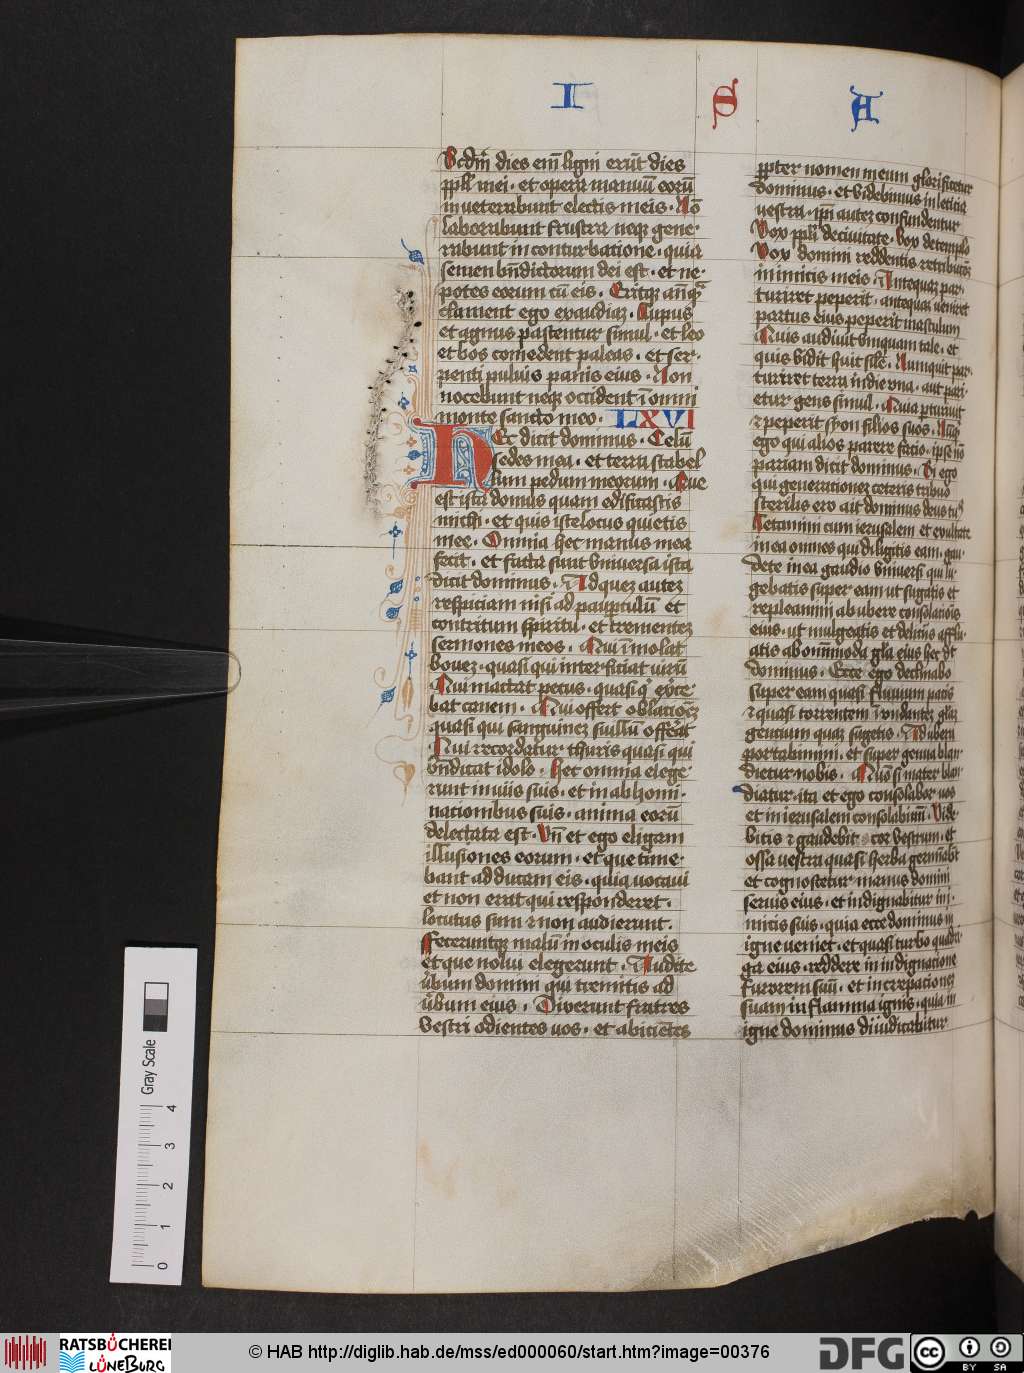 I S A
Scdm̄ dies em̄ ligni erūt dies
ppl̄i mei · et opera manuū eorū
inueterabunt electis meis · Nō
laborabunt frustra neqȝ gene-
rabunt in conturbatione · quia
semen bn̄dictorum dei est · et ne-
potes eorum cū eis · Eritqȝ anͭqͣ
clament ego exaudiaȝ · Lupus
et agnus pascentur simul · et leo
et bos comedent paleas · et ser-
penti puluis panis eius · Non
nocebunt neqȝ occident ī omni
monte sancto meo · LXVI
Hec dicit dominus · Celū
sedes mea · et terra scabel
lum pedum meorum · Que
est ista domus quam edificastis
michi · et quis iste locus quietis
mee · Omnia hec manus mea
fecit · et facta sunt vniuersa ista
dicit dominus · Ad queȝ auteȝ
respiciam nisi ad paupculū et
contritum spiritu · et trementeȝ
sermones meos · Qui imolat
boueȝ · quasi qui interficiat virū
Qui mactat pecus · quasi qͥ excre
bat canem · Qui offert oblacōeȝ
quasi qui sanguineȝ suillū offerat
Qui recordatur thuris quasi qui
bn̄dicat idolo · Hec omnia elege
runt in viis suis · et in abhomi-
nacionibus suis · anima eorū
delectata est · Vn̄ et ego eligam
illusiones eorum · et que time-
bant adducam eis · quia uocaui
et non erat qui responderet ·
locutus sum ⁊ non audierunt ·
Feceruntqȝ malū in oculis meis
et que nolui elegerunt · Audite
v̄bum domini qui tremitis ad
v̄bum eius · Dixerunt fratres
vestri odientes uos · et abicientes
ppter nomen meum glorificetur
dominus · et videbimus in leticia
vestra · ipi̅ auteȝ confundentur
Vox ppl̄i de ciuitate · vox de templo
Vox domini reddentis retributōeȝ
inimicis meis · Antequaȝ par-
turiret peperit · antequaȝ ueniret
partus eius peperit masculum
Quis audiuit vmquam tale · et
quis vidit huic sile̅ · Numquit par-
turiret terra in die vna · aut pari-
etur gens simul · Quia pturiuit
⁊ peperit syon filios suos · Nūqͥ
ego qui alios parere facio · ipse nō
pariam dicit dominus · Si ego
qui generacioneȝ ceteris tribuo
sterilis ero ait dominus deus tuꝰ
Letamini cum ierusalem et exultate
in ea omnes qui diligitis eam · gau-
dete in ea gaudio vniuersi qui lu-
gebatis super eam ut sugatis et
repleamini ab ubere consolacionis
eius · ut mulgeatis et deliciis afflu-
atis ab omnimoda gl̄a eius hec dt̄
dominus · Ecce ego declinabo
super eam quasi fluuium pacis
⁊ quasi torrentem īundanteȝ gl̄aȝ
gencium quaȝ sugetis · Ad ubera
portabimini · et super genua blan-
dietur uobis · Quō si mater blan-
diatur · ita et ego consolabor uos
et in ierusalem consolabimī · Vide-
bitis ⁊ gaudebit cor vestrum · et
ossa vestra quasi herba germīabt̄
et cognoscetur manus domini
seruis eius · et indignabitur ini-
micis suis · quia ecce dominus in
igne veniet · et quasi turbo quadri-
ga eius · reddere in indignacione
furorem suū · et increpacioneȝ
suam in flamma ignis · quia in
igne dominus diiudicabitur
Gray Scale
0 1 2 3 4
RATSBÜCHEREI
LÜNEBURG
© HAB http://diglib.hab.de/mss/ed000060/start.htm?image=00376
DFG
cc BY SA